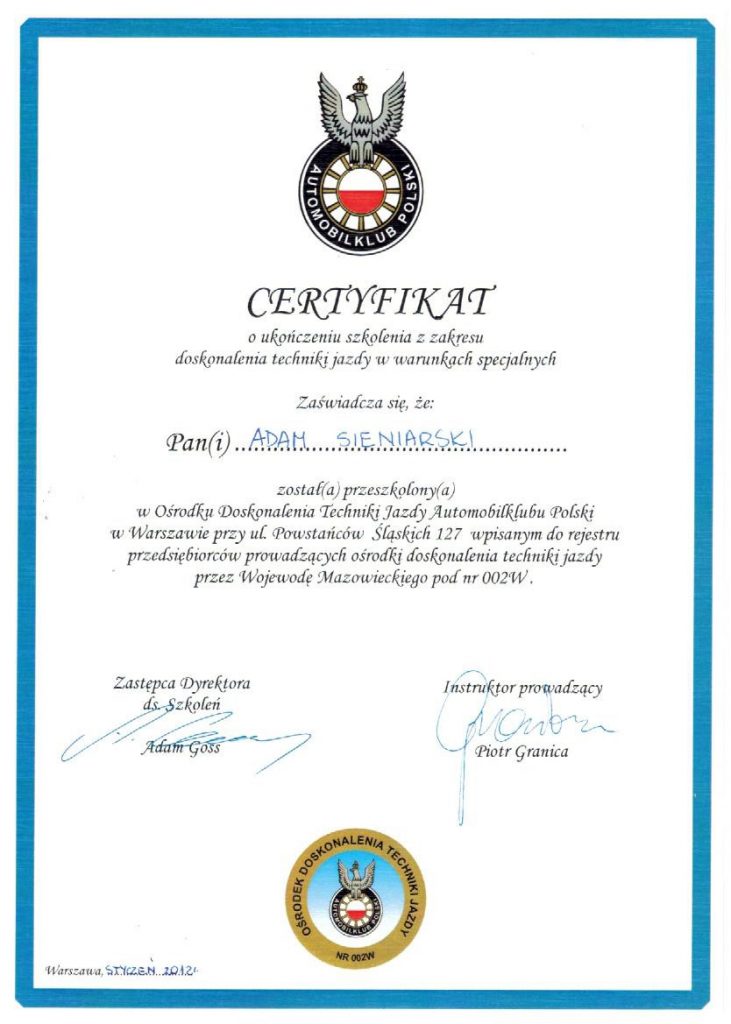 AUTOMOBILKLUB POLSKI
CERTYFIKAT
o ukończeniu szkolenia z zakresu
doskonalenia techniki jazdy w warunkach specjalnych
Zaświadcza się, że:
Pan(i) ADAM SIENIARSKI
został(a) przeszkolony(a)
w Ośrodku Doskonalenia Techniki Jazdy Automobilklubu Polski
w Warszawie przy ul. Powstańców Śląskich 127 wpisanym do rejestru
przedsiębiorców prowadzących ośrodki doskonalenia techniki jazdy
przez Wojewodę Mazowieckiego pod nr 002W.
Zastępca Dyrektora
ds. Szkoleń
Adam Goss
Instruktor prowadzący
Piotr Granica
OŚRODEK DOSKONALENIA TECHNIKI JAZDY
AUTOMOBILKLUB POLSKI
NR 002W
Warszawa, STYCZEŃ 2012r